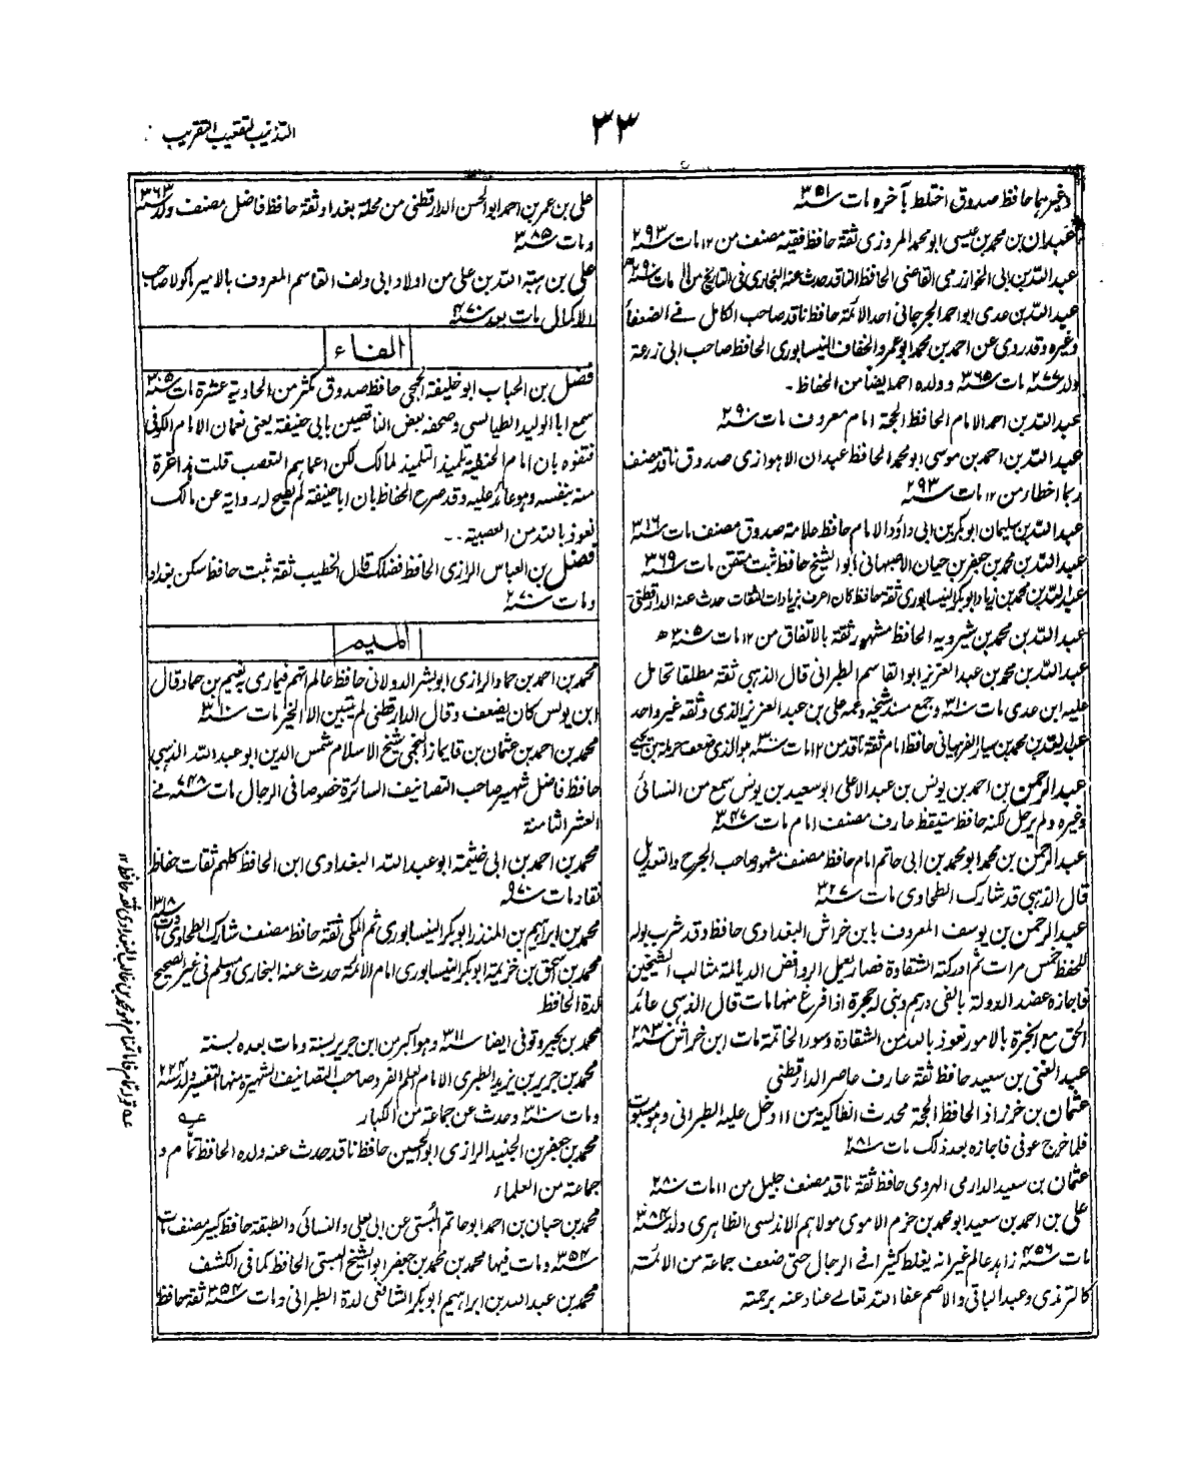 التذنيب لتعقيب التقريب
٣٣
وغيرهما حافظ صدوق اختلط بآخره مات سنة ٣٥١
عبدان بن محمد بن عيسى ابو محمد المروزى ثقة حافظ فقيه مصنف من ١٢ مات سنة ٢٩٣
عبد الله بن ابى الخوارزمى القاضى الحافظ الناقد حدث عنه البخارى فى التاريخ من ١١ مات سنة ٢٩٠
عبد الله بن عدى ابو احمد الجرجانى احد الائمة حافظ ناقد صاحب الكامل فے الضعفأ
وغيره وقد روى عن احمد بن محمد ابو عمرو الخفاف النيسابورى الحافظ صاحب ابى زرعة
ولد سنة ٢٧٧ مات سنة ٣٦٥ وولده احمد ايضا من الحفاظ ـ
عبد الله بن احمد الامام الحافظ الحجة امام معروف مات سنة ٢٩٠
عبد الله بن احمد بن موسى ابو محمد الحافظ عبدان الاهوازى صدوق ناقد مصنف
ربما اخطأ من ١٢ مات سنة ٢٩٣
عبد الله بن سليمان ابو بكر بن ابى داؤد الامام حافظ علامة صدوق مصنف مات سنة ٣١٦
عبد الله بن محمد بن جعفر بن حيان الاصبهانى ابو الشيخ حافظ ثبت متقن مات سنة ٣٦٩
عبد الله بن محمد بن زياد ابو بكر النيسابورى ثقة حافظ كان اعرف بزيادات الثقات حدث عنه الدارقطنى
عبد الله بن محمد بن شيرويه الحافظ مشهور ثقة بالاتفاق من ١٢ مات سنة ٣٠٥ ھ
عبد الله بن محمد بن عبد العزيز ابو القاسم الطبرانى قال الذهبى ثقة مطلقا تحامل
عليه ابن عدى مات سنة ٣١٠ وجمع مسند شيخه وعمه على بن عبد العزيز الذى وثقه غير واحد
عبد الله بن محمد بن سيار الفرهيانى حافظ امام ثقة ناقد من ١٢ مات سنة ٣٠٠ هو الذى ضعف حرملة بن يحيے
عبد الرحمن بن احمد بن يونس بن عبد الاعلى ابو سعيد بن يونس سمع من النسائى
وغيره ولم يرحل لكنه حافظ متيقظ عارف مصنف امام مات سنة ٣٤٧
عبد الرحمن بن محمد ابو محمد بن ابى حاتم امام حافظ مصنف مشهور صاحب الجرح والتعديل
قال الذهبى قد شارك الطحاوى مات سنة ٣٢٧
عبد الرحمن بن يوسف المعروف بابن خراش البغدادى حافظ وقد شرب بوله
للحفظ خمس مرات ثم ادركته الشقاوة فصار يعمل الروافض الديالمة مثالب الشيخين
فاجازه عضد الدولة بالفى درهم وبنى له حجرة اذا فرغ منها مات قال الذهبى عاند
الحق مع الخبرة بالامور نعوذ بالله من الشقاوة وسوء الخاتمة مات ابن خراش سنة ٢٨٣
عبد الغنى بن سعيد حافظ ثقة عارف عاصر الدارقطنى
عثمان بن خرزاذ الحافظ الحجة محدث انطاكية من ١١ دخل عليه الطبرانى وهو
فلما خرج عوفى فاجازه بعد ذلك مات سنة ٢٨١
عثمان بن سعيد الدارمى الهروى حافظ ثقة ناقد مصنف جليل من ١١ مات سنة ٢٨٠
على بن احمد بن سعيد ابو محمد بن حزم الاموى مولاهم الاندلسى الظاهرى ولد سنة ٣٨٤
مات سنة ٤٥٦ زاهد عالم غير انه يغلط كثيرا فے الرجال حتى ضعف جماعة من الائمة
كالترمذى وعبد الباقى والاصم عفا الله تعالے عنا وعنه برحمته
على بن عمر بن احمد ابو الحسن الدارقطنى من محلة بغداد ثقة حافظ فاضل مصنف ولد سنة ٣٠٦٣
ومات سنة ٣٨٥
على بن هبة الله بن على من اولاد ابى دلف القاسم المعروف بالامير ماكولا صاحب
الاكمال مات بعد سنة ٤٧٠
الفاء
فضل بن الحباب ابو خليفة الجمحى حافظ صدوق مكثر من الحادية عشرة مات سنة ٣٠٥
سمع ابا الوليد الطيالسى وصحفه بعض الناقصين بابى حنيفة يعنى نعمان الامام الكوفى
فتفوه بان امام الحنفية تلميذ التلميذ لمالك لكن اعماهم التعصب قلت هذا غرة
منه بنفسه وهو عائد عليه وقد صرح الحفاظ بان ابا حنيفة لم يصح له رواية عن مالك
نعوذ بالله من العصبية ..
فضل بن العباس الرازى الحافظ فضلك قال الخطيب ثقة ثبت حافظ سكن بغداد
ومات سنة ٢٧٠
الميم
محمد بن احمد بن حماد الرازى ابو بشر الدولابى حافظ عالم اتهم فيما روى نعيم بن حماد وقال
ابن يونس كان يضعف وقال الدارقطنى لم يتبين الا الخير مات سنة ٣١٠
محمد بن احمد بن عثمان بن قايماز النجمى شيخ الاسلام شمس الدين ابو عبد الله الذهبى
حافظ فاضل شهير صاحب التصانيف السائرة خصوصا فى الرجال مات سنة ٧٤٨ فے
العشر الثامنة
محمد بن احمد بن ابى خيثمة ابو عبد الله البغدادى ابن الحافظ كلهم ثقات حفاظ
نقاد مات سنة ٩٧
محمد بن ابراهيم بن المنذر ابو بكر النيسابورى ثم المكى ثقة حافظ مصنف شارك الطحاوى مات سنة ٣١٨
محمد بن اسحق بن خزيمة ابو بكر النيسابورى امام الائمة حدث عنه البخارى ومسلم فى غير الصحيح
لدة الحافظ
محمد بن بجير وتوفى ايضا سنة ٣١١ وهو اكبر من ابن جرير بسنة ومات بعده بسنة
محمد بن جرير بن يزيد الطبرى الامام العلم الفرد صاحب التصانيف الشهيرة منها التفسير ولد سنة ٢٢٤
ومات سنة ٣١٠ وحدث عن جماعة من الكبار
محمد بن جعفر بن الجنيد الرازى ابو الحسين حافظ ناقد حدث عنه ولده الحافظ تمام و
جماعة من العلماء
محمد بن حبان بن احمد ابو حاتم البستى عن ابى يعلى والنسائى والطبقة حافظ كبير مصنف مات
سنة ٣٥٤ ومات فيها محمد بن محمد بن جعفر ابو الشيخ البستى الحافظ كما فى الكشف
محمد بن عبد الله بن ابراهيم ابو بكر الشافعى لدة الطبرانى ومات سنة ٣٥٤ ثقة حافظ